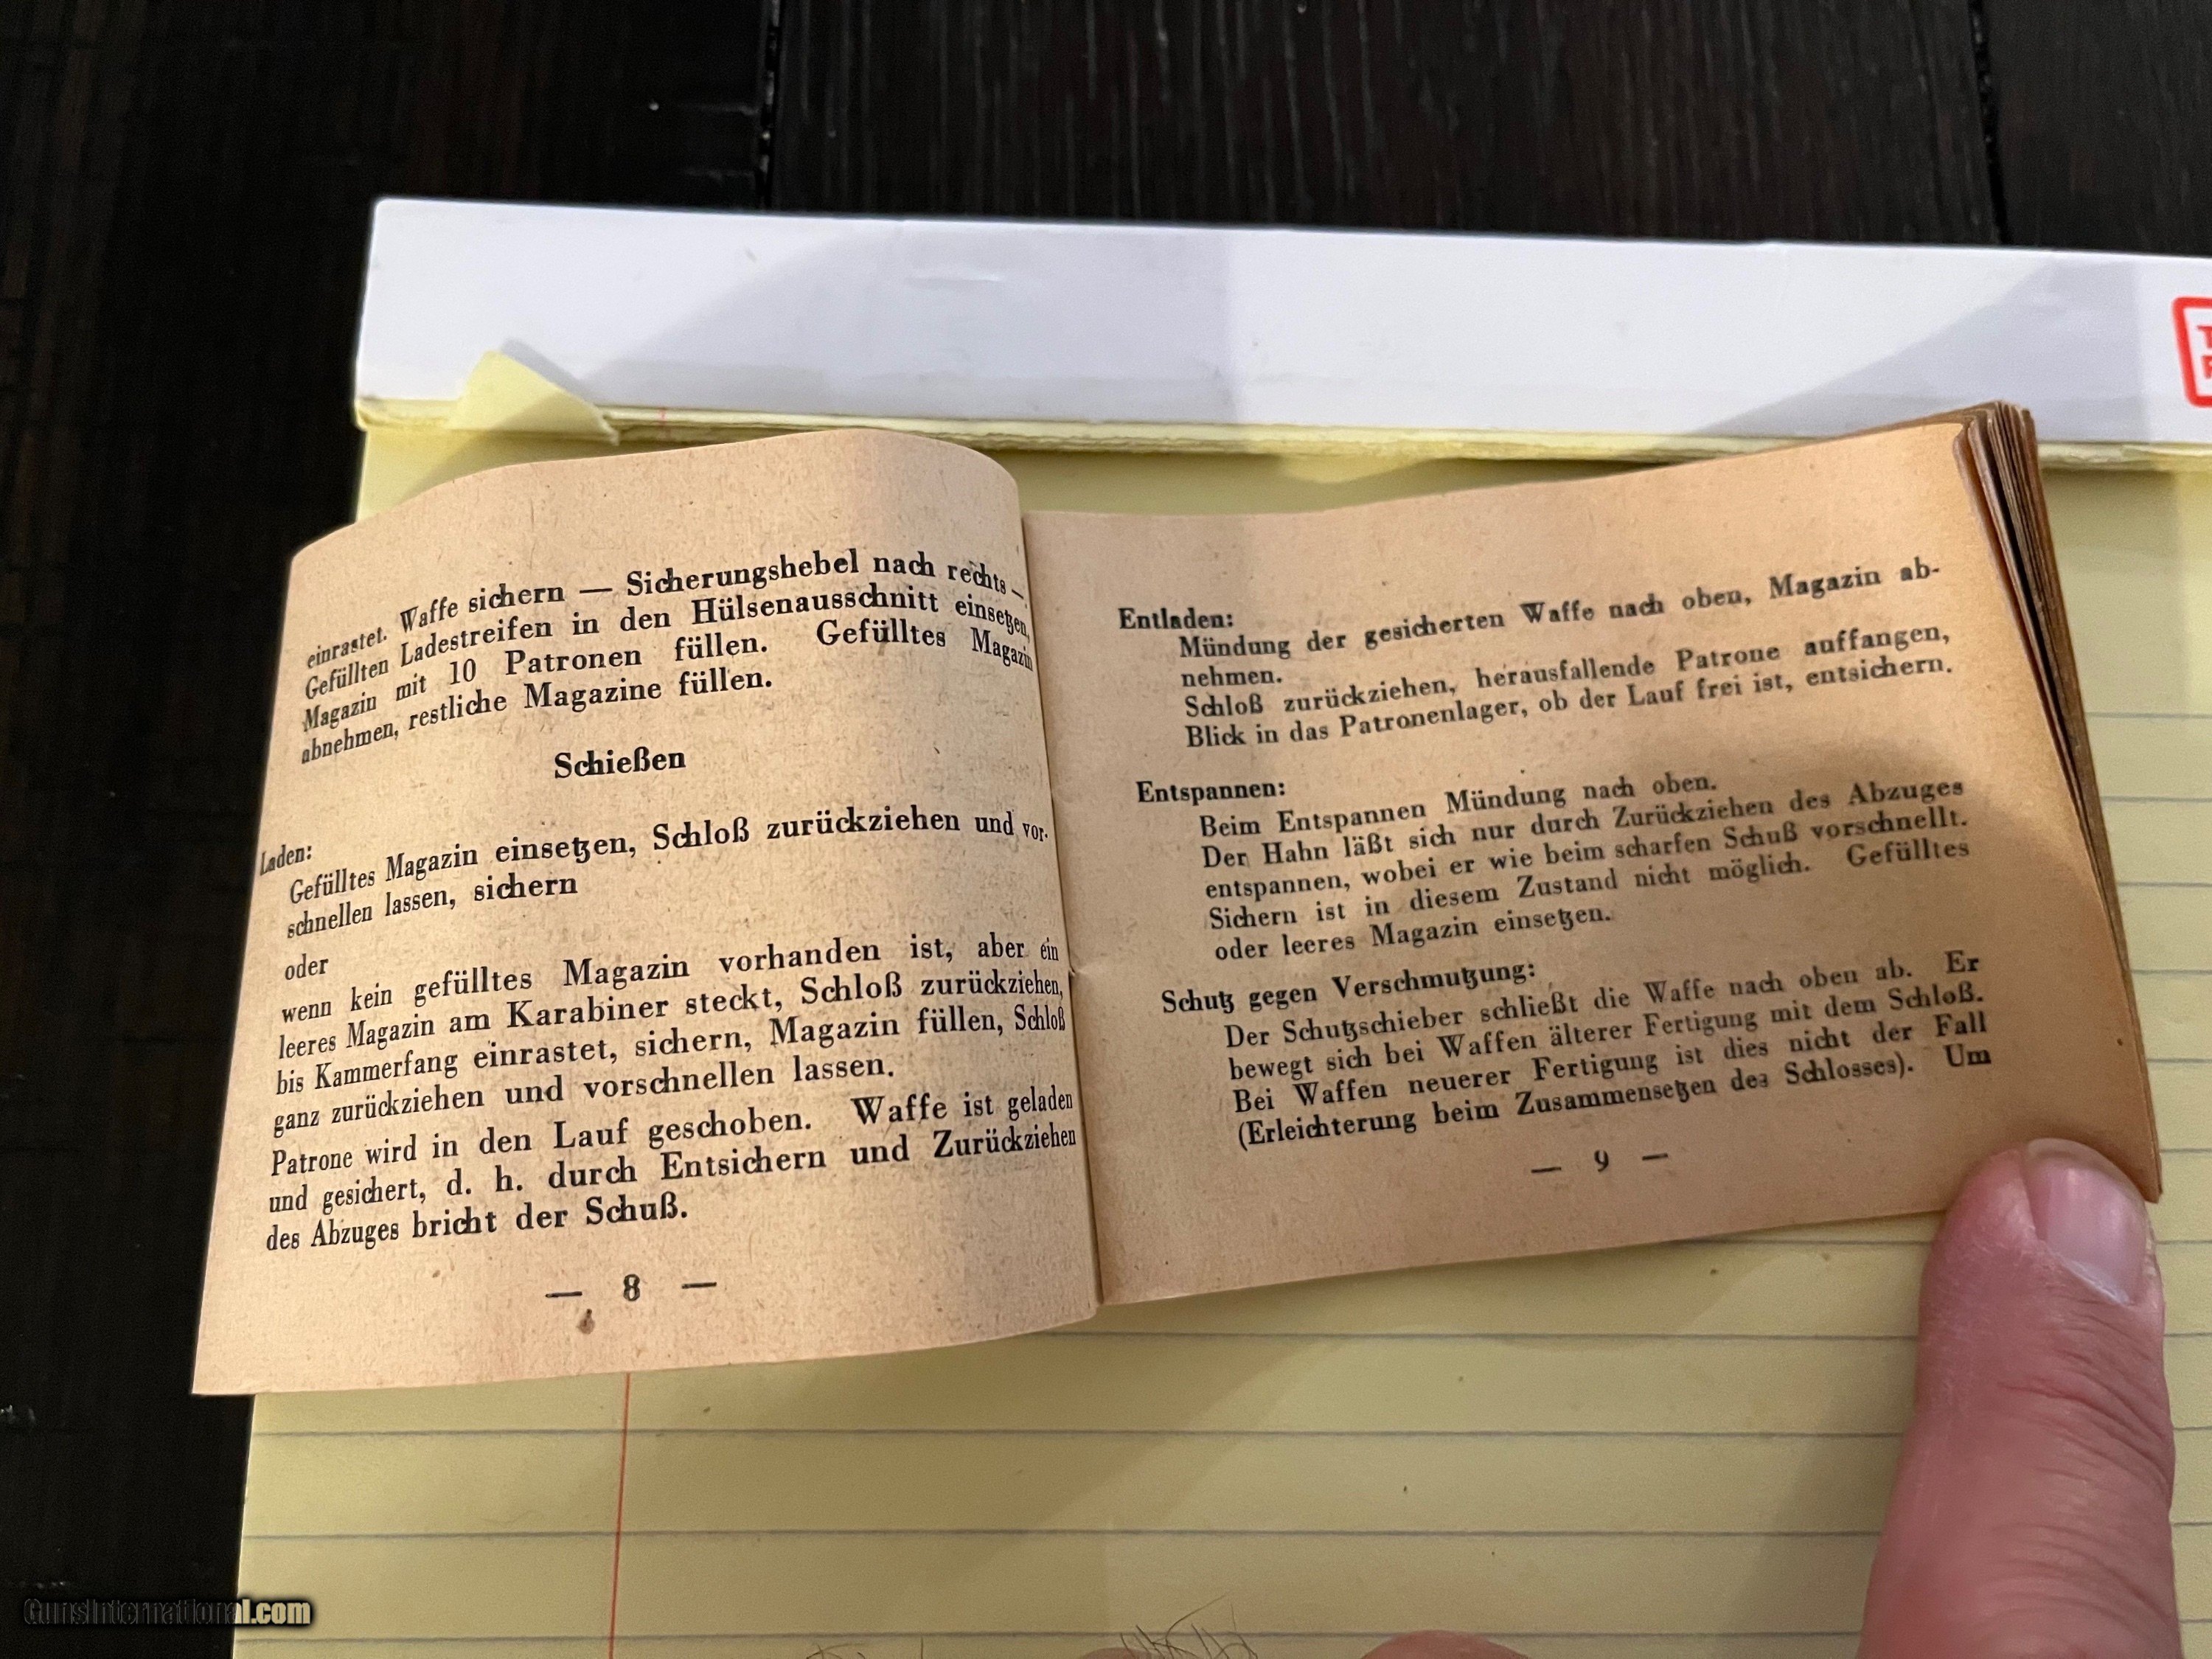 einrastet. Waffe sichern — Sicherungshebel nach rechts —.
Gefüllten Ladestreifen in den Hülsenausschnitt einsetzen,
Magazin mit 10 Patronen füllen. Gefülltes Magazin
abnehmen, restliche Magazine füllen.
Schießen
Laden:
Gefülltes Magazin einsetzen, Schloß zurückziehen und vor-
schnellen lassen, sichern
oder
wenn kein gefülltes Magazin vorhanden ist, aber ein
leeres Magazin am Karabiner steckt, Schloß zurückziehen,
bis Kammerfang einrastet, sichern, Magazin füllen, Schloß
ganz zurückziehen und vorschnellen lassen.
Patrone wird in den Lauf geschoben. Waffe ist geladen
und gesichert, d. h. durch Entsichern und Zurückziehen
des Abzuges bricht der Schuß.
— 8 —
Entladen:
Mündung der gesicherten Waffe nach oben, Magazin ab-
nehmen.
Schloß zurückziehen, herausfallende Patrone auffangen,
Blick in das Patronenlager, ob der Lauf frei ist, entsichern.
Entspannen:
Beim Entspannen Mündung nach oben.
Der Hahn läßt sich nur durch Zurückziehen des Abzuges
entspannen, wobei er wie beim scharfen Schuß vorschnellt.
Sichern ist in diesem Zustand nicht möglich. Gefülltes
oder leeres Magazin einsetzen.
Schutz gegen Verschmutzung:
Der Schutzschieber schließt die Waffe nach oben ab. Er
bewegt sich bei Waffen älterer Fertigung mit dem Schloß.
Bei Waffen neuerer Fertigung ist dies nicht der Fall
(Erleichterung beim Zusammensetzen des Schlosses). Um
— 9 —
GunsInternational.com